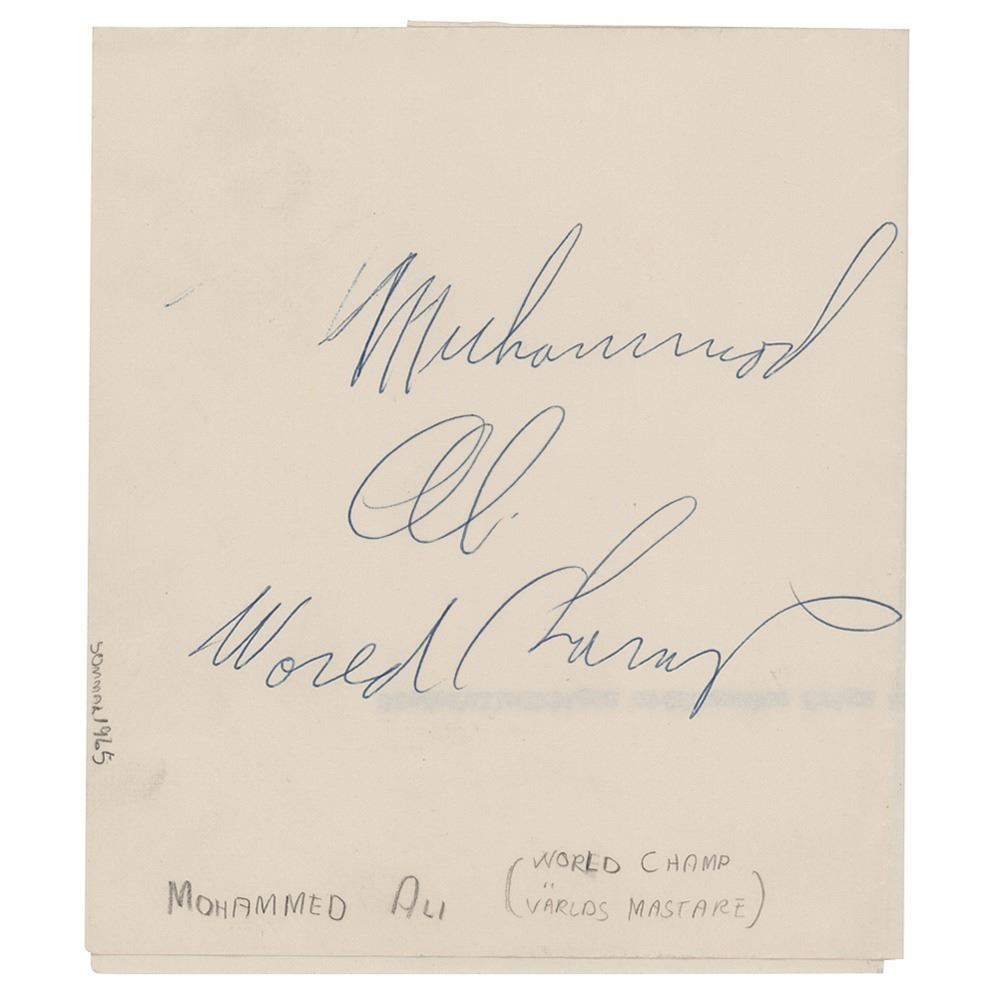 Muhammad
Ali
World Champ
sommar 1965
MOHAMMED ALI (WORLD CHAMP
VÄRLDS MASTARE)